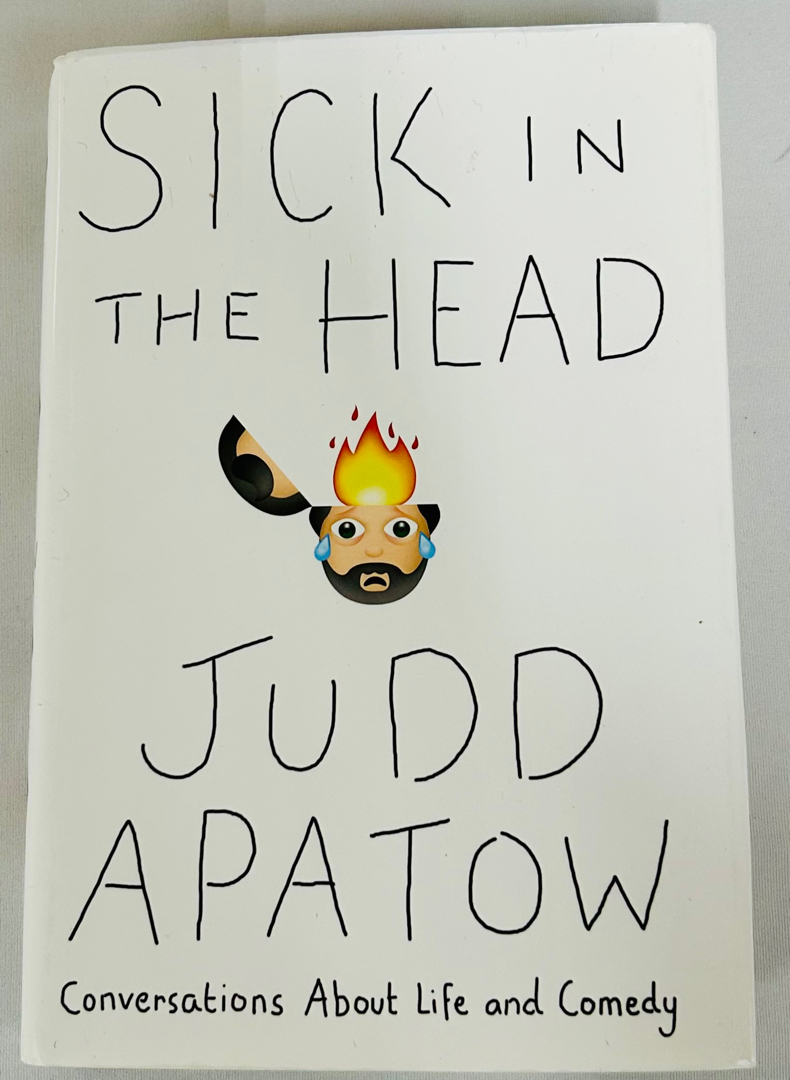 SICK IN
THE HEAD
JUDD
APATOW
Conversations About Life and Comedy